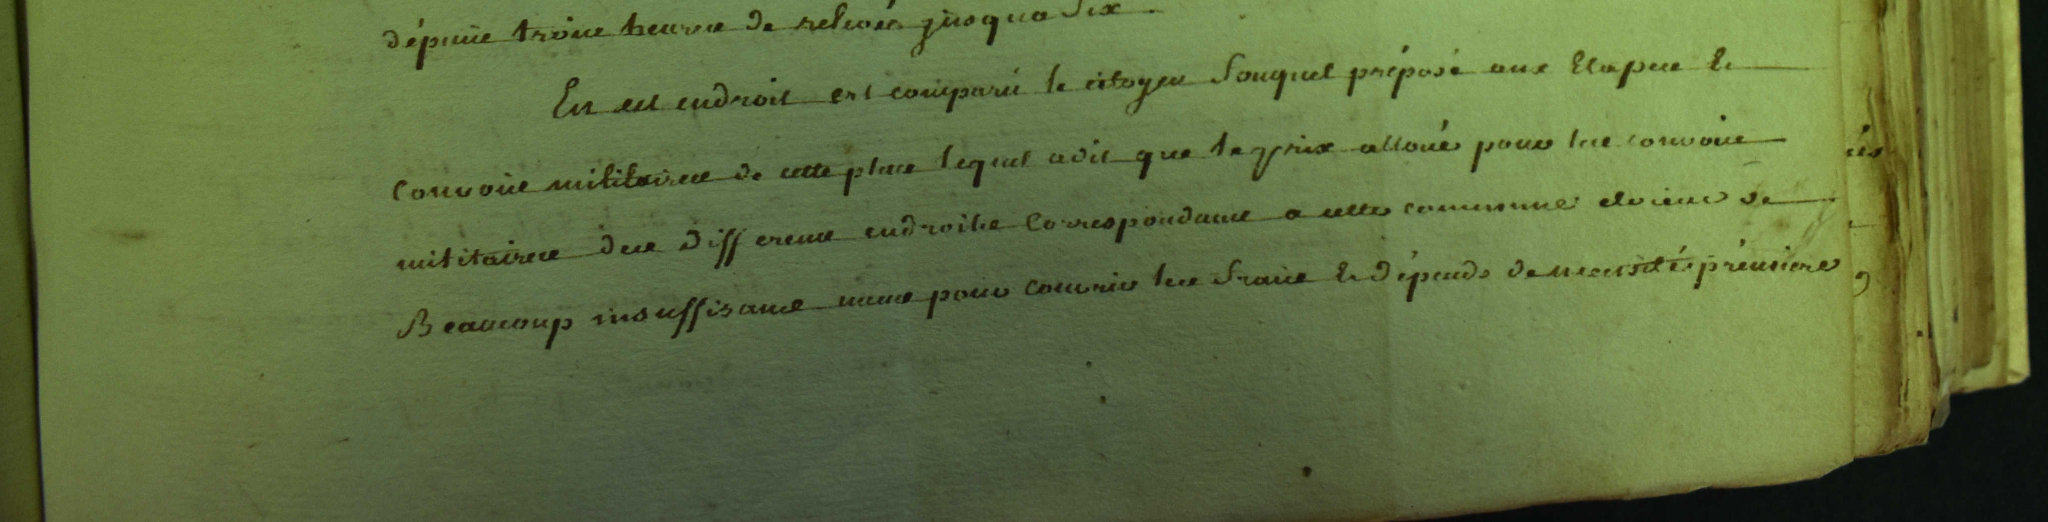 dépuis trois heures de relevée jusqua six.
En cet endroit est comparu le citoyen Fouquet préposé aux Etapes &
convois militaires de cette place lequel a dit que le prix alloué pour les convois
militaires des differens endroits Correspondans a cette commune etoient de
Beaucoup insuffisans même pour couvrir les fraix & dépends de necessité prémiere